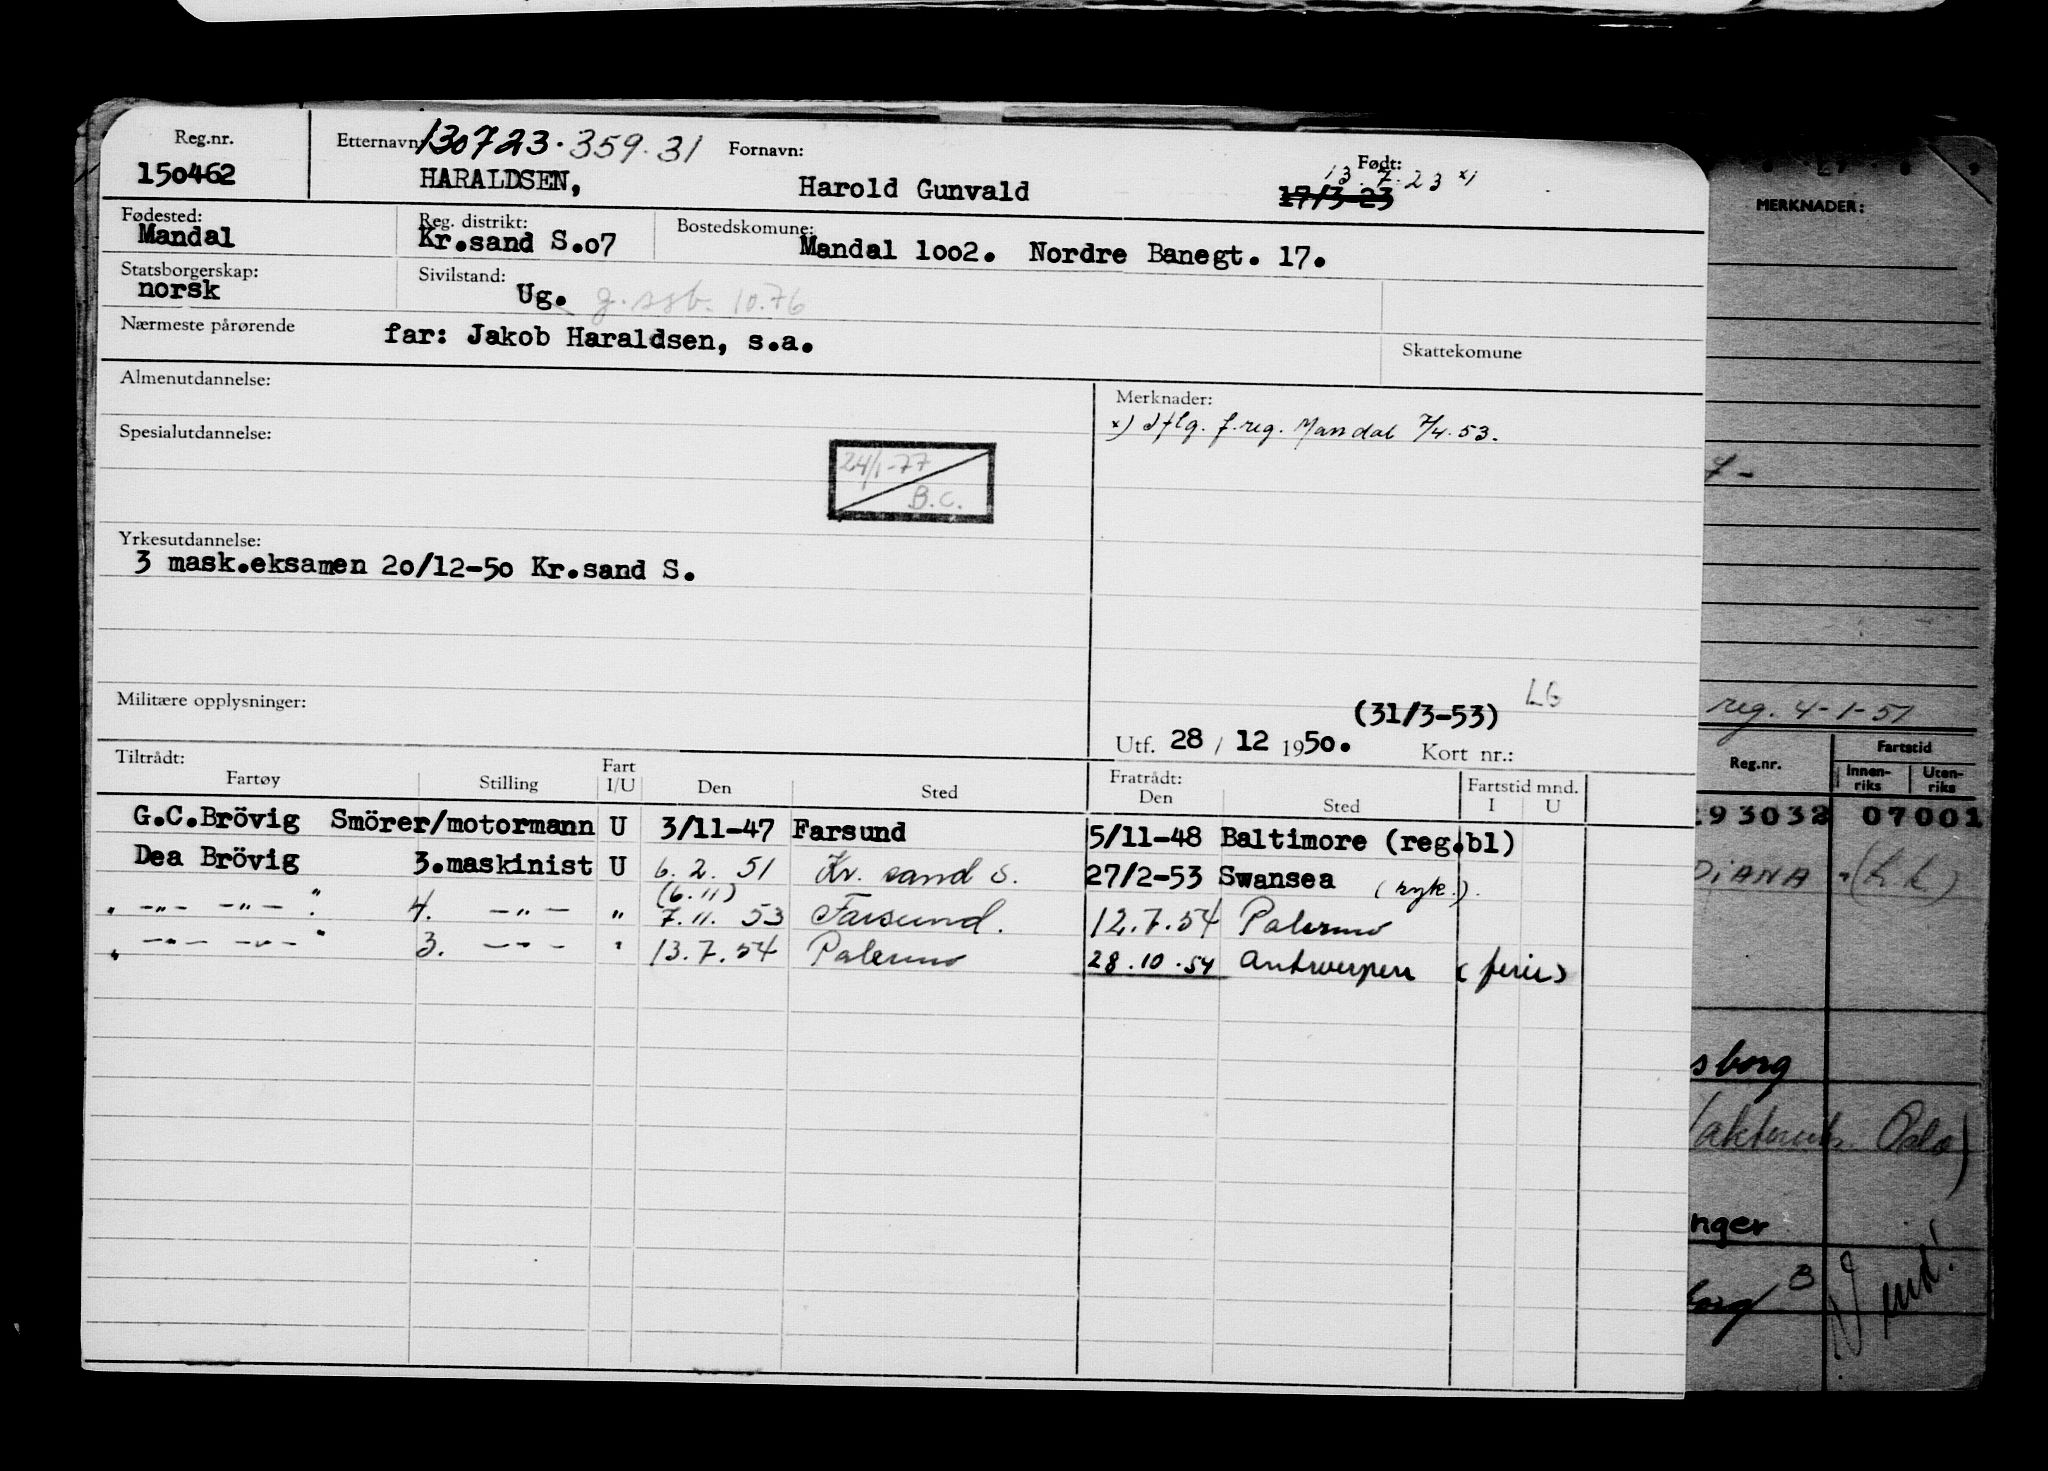 Reg.nr. Etternavn: 130723.359.31 Fornavn: Født:
13.7.23 x)
150462 HARALDSEN, Harold Gunvald 17/3-23
Fødested: Reg. distrikt: Bostedskomune:
Mandal Kr.sand S.o7 Mandal 1oo2. Nordre Banegt. 17.
Statsborgerskap: Sivilstand:
norsk Ug. g. 10.76
Nærmeste pårørende far: Jakob Haraldsen, s.a. Skattekomune
Almenutdannelse: Merknader:
x) Iflg. f.reg. Mandal 7/4.53.
Spesialutdannelse:
24/1-77
B.C.
Yrkesutdannelse:
3 mask.eksamen 2o/12-5o Kr.sand S.
Militære opplysninger: (31/3-53) LG
Utf. 28 / 12 195o. Kort nr.:
Tiltrådt: Fratrådt:
Fartøy Stilling Fart I/U Den Sted Den Sted Fartstid mnd. I U
G.C.Brövig Smörer/motormann U 3/11-47 Farsund 5/11-48 Baltimore (reg.bl)
Dea Brövig 3.maskinist U 6.2.51 Kr. sand S. 27/2-53 Swansea (syk.).
(6.11)
" -"- -"- " 4. -"- " 7.11.53 Farsund. 12.7.54 Palermo
" -"- -"- " 3. -"- " 13.7.54 Palermo 28.10.54 Antwerpen (ferie)
MERKNADER:
7-
reg. 4-1-51
Reg.nr. Fartstid
Innen-riks Uten-riks
93032 07001
DIANA
sborg
Oslo)
nger
borg B
Vend!